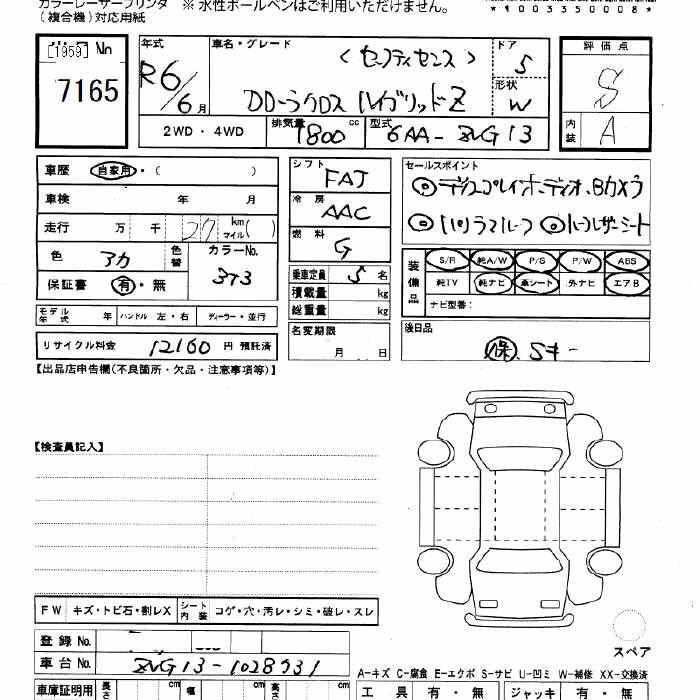 カラーレーザープリンタ ※ 水性ボールペンはご利用いただけません。
(複合機)対応用紙
*1003350008*
[1959] No
7165
年式
R6/6月
車名・グレード
(セーフティセンス)
カローラクロス ハイブリッドZ
ドア
5
形状
W
評価点
S
内装
A
2WD・4WD
排気量
1800 cc
型式
6AA-ZVG13
車歴 自家用・( )
車検 年 月
走行 万 千 km
マイル( )
色 アカ
色替
カラーNo.
3T3
保証書 有・無
シフト
FAT
冷房
AAC
燃料
G
乗車定員 5 名
積載量 kg
総重量 kg
名変期限
月 日
セールスポイント
◎ディスプレイオーディオ・Bカメラ
◎パノラマルーフ ◎ハーフレザーシート
装備品
S/R 純A/W P/S P/W ABS
純TV 純ナビ 革シート 外ナビ エアB
ナビ型番:
後日品
保、Sキー
モデル年式 年 ハンドル 左・右 ディーラー・並行
リサイクル料金 12160 円 預託済
【出品店申告欄(不良箇所・欠品・注意事項等)】
【検査員記入】
FW キズ・トビ石・割レX
シート内装 コゲ・穴・汚レ・シミ・破レ・スレ
登録 No.
車台 No. ZVG13-1028931
スペア
A−キズ C−腐食 E−エクボ S−サビ U−凹ミ W−補修 XX−交換済
車庫証明用 長さ cm 幅 cm 高さ cm
工具 有・無 ジャッキ 有・無